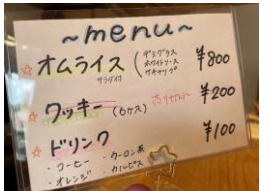 ~menu~
☆オムライス(デミグラス
ホワイトソース
ケチャップ
サラダ付
¥800
☆クッキー(6ケス)
¥200
☆ドリンク
¥100
・コーヒー ・ウーロン茶
・オレンジ ・カルピス